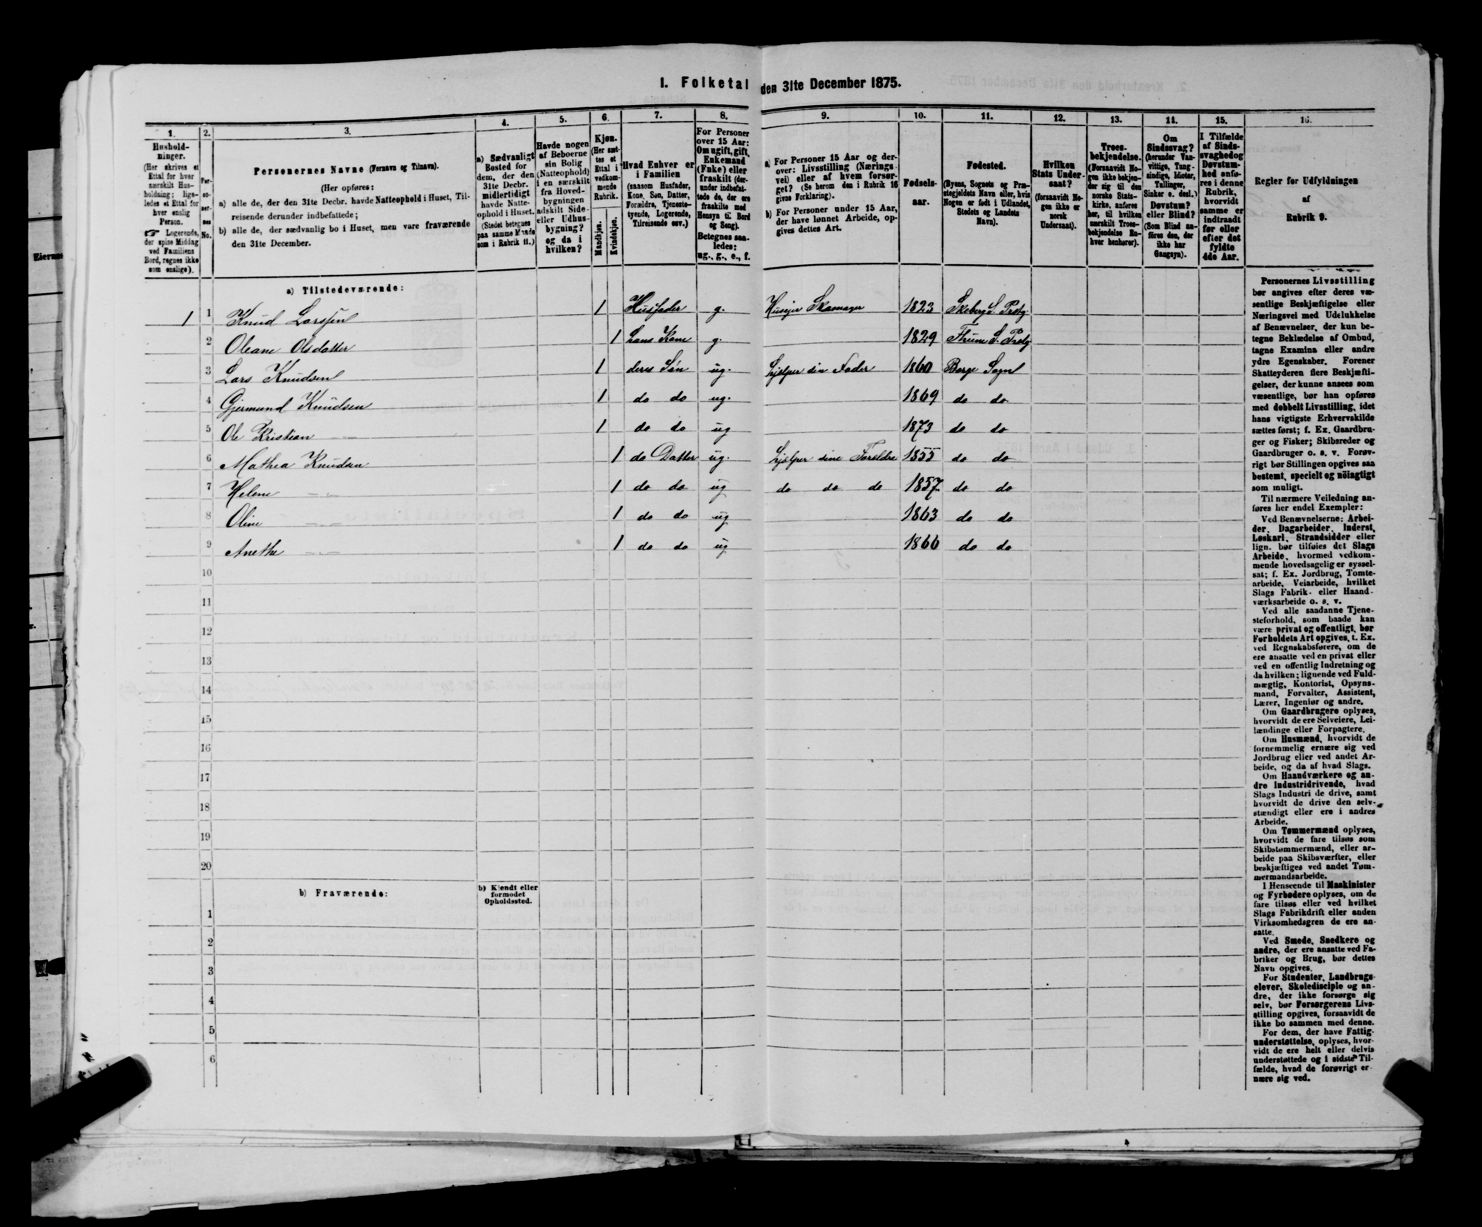 I. Folketal den 31te December 1875.
1. 2. 3. 4. 5. 6. 7. 8. 9. 10. 11. 12. 13. 14. 15. 16.
Husholdninger.
(Her skrives et Ettal for hver særskilt Husholdning; ligeledes et Ettal for hver enslig Person.
Logerende, der spise Middag ved Familiens Bord, regnes ikke som enslige).
Personernes No.
Personernes Navne (Fornavn og Tilnavn).
(Her opføres:
a) alle de, der den 31te Decbr. havde Natteophold i Huset, Tilreisende derunder indbefattede;
b) alle de, der sædvanlig bo i Huset, men vare fraværende den 31te December.
a) Sædvanligt Bosted for dem, der den 31te Decbr. midlertidigt havde Natteophold i Huset.
(Stedet betegnes paa samme Maade som i Rubrik 11.)
Havde nogen af Beboerne sin Bolig (Natteophold) i en særskilt fra Hovedbygningen adskilt Side- eller Udhusbygning? og da i hvilken?
Kjøn.
(Her sættes et Ettal i vedkommende Rubrik.
Mandkjøn. Kvindekjøn.
Hvad Enhver er i Familien
(saasom Husfader, Kone, Søn, Datter, Forældre, Tjenestetyende, Logerende, Tilreisende osv.)
For Personer over 15 Aar: Om ugift, gift, Enkemand (Enke) eller fraskilt (derunder indbefattede de, der ere fraskilte med Hensyn til Bord og Seng).
Betegnes saaledes: ug., g., e., f.
a) For Personer 15 Aar og derover: Livsstilling (Næringsvei) eller af hvem forsørget? (Se herom den i Rubrik 16 givne Forklaring).
b) For Personer under 15 Aar, der have lønnet Arbeide, opgives dettes Art.
Fødselsaar.
Fødested.
(Byens, Sognets og Præstegjeldets Navn eller, hvis Nogen er født i Udlandet, Stedets og Landets Navn).
Hvilken Stats Undersaat?
(forsaavidt Nogen ikke er norsk Undersaat).
Troesbekjendelse.
(Forsaavidt Nogen ikke bekjender sig til den norske Statskirke, anføres her, til hvilken særskilt Troesbekjendelse Enhver henhører).
Om Sindssvag? (herunder Vanvittige, Tungsindige, Idioter, Tullinger, Sinker o. desl.) Døvstum? eller Blind? (Som Blind anføres den, der ikke har Gangsyn).
I Tilfælde af Sindssvaghed og Døvstumhed anføres i denne Rubrik, hvorvidt samme er indtraadt før eller efter det fyldte 4de Aar.
Regler for Udfyldningen af Rubrik 9.
a) Tilstedeværende:
1 1 Knud Larssen 1 Husfader g. Husejer Skomager 1823 Skeberg S. Præstg
2 Oleane Olsdatter 1 hans Kone g. 1829 Thune S. Præstg
3 Lars Knudsen 1 deres Søn ug. hjelper sin Fader 1860 Berge Sogn
4 Gjermund Knudsen 1 do do ug. 1869 do do
5 Ole Kristian 1 do do ug 1873 do do
6 Mathea Knudsen 1 do Datter ug. hjelper sine Foreldre 1855 do do
7 Helene — 1 do do ug do do do 1857 do do
8 Oline — 1 do do ug 1863 do do
9 Anethe — 1 do do ug 1866 do do
10
11
12
13
14
15
16
17
18
19
20
b) Fraværende: b) Kjendt eller formodet Opholdssted.
1
2
3
4
5
6
Personernes Livsstilling
bør angives efter deres væ-
sentlige Beskjæftigelse eller
Næringsvei med Udelukkelse
af Benævnelser, der kun be-
tegne Beklædelse af Ombud,
tagne Examina eller andre
ydre Egenskaber. Forener
Skatteyderen flere Beskjæfti-
gelser, der kunne ansees som
væsentlige, bør han opføres
med dobbelt Livsstilling, idet
hans vigtigste Erhvervskilde
sættes først; f. Ex. Gaardbru-
ger og Fisker; Skibsreder og
Gaardbruger o. s. v. Forøv-
rigt bør Stillingen opgives saa
bestemt, specielt og nøiagtigt
som muligt.
Til nærmere Veiledning an-
føres her endel Exempler:
Ved Benævnelserne: Arbei-
der, Dagarbeider, Inderst,
Løskarl, Strandsidder eller
lign. bør tilføies det Slags
Arbeide, hvormed vedkom-
mende hovedsagelig er syssel-
sat; f. Ex. Jordbrug, Tomte-
arbeide, Veiarbeide, hvilket
Slags Fabrik- eller Haand-
værksarbeide o. s. v.
Ved alle saadanne Tjene-
steforhold, som baade kan
være privat og offentligt, bør
Forholdets Art opgives, t. Ex.
ved Regnskabsførere, om de
ere ansatte ved en privat eller
ved en offentlig Indretning og
da hvilken; liguende ved Fuld-
mægtig, Kontorist, Opsyns-
mand, Forvalter, Assistent,
Lærer, Ingeniør og andre.
Om Gaardbrugere oplyses,
hvorvidt de ere Selveiere, Lei-
lændinge eller Forpagtere.
Om Husmænd, hvorvidt de
fornemmelig ernære sig ved
Jordbrug eller ved andet Ar-
beide, og da af hvad Slags.
Om Haandværkere og an-
dre Industridrivende, hvad
Slags Industri de drive, samt
hvorvidt de drive den selv-
stændigt eller ere i andres
Arbeide.
Om Tømmermænd oplyses,
hvorvidt de fare tilsøs som
Skibstømmermænd, eller ar-
beide paa Skibsværfter, eller
beskjæftiges ved andet Tøm-
mermandsarbeide.
I Henseende til Maskinister
og Fyrbødere oplyses, om de
fare tilsøs eller ved hvilket
Slags Fabrikdrift eller anden
Virksomhedsgren de ere an-
satte.
Ved Smede, Snedkere og
andre, der ere ansatte ved Fa-
briker og Brug, bør dettes
Navn opgives.
For Studenter, Landbrugs-
elever, Skoledisciple og an-
dre, der ikke forsørge sig
selv, bør Forsørgerens Livs-
stilling opgives, forsaavidt de
ikke bo sammen med denne.
For dem, der have Fattig-
understøttelse, oplyses, hvor-
vidt de ere helt eller delvis
understøttede og i sidste Til-
fælde, hvad de forøvrigt er-
nære sig ved.